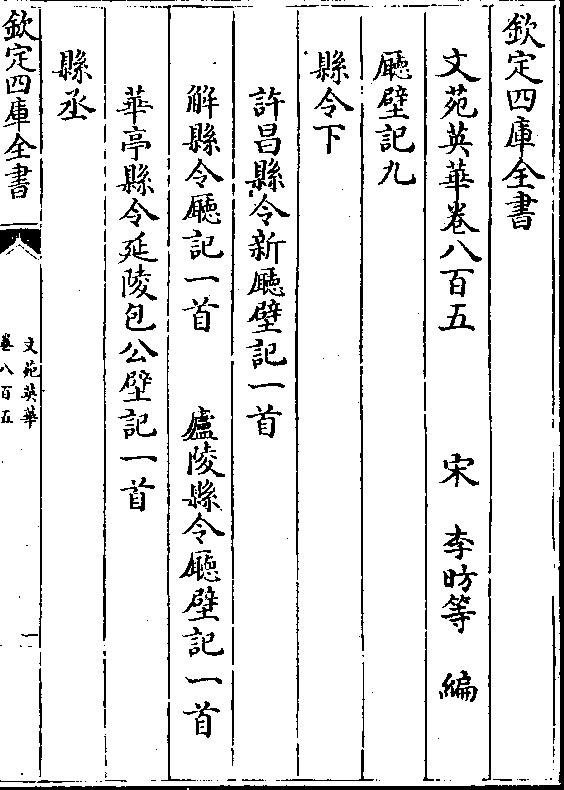 欽定四庫全書
文苑英華卷八百五 宋 李昉等 編
廳壁記九
縣令下
許昌縣令新廳壁記一首
解縣令廳記一首 廬陵縣令廳壁記一首
華亭縣令延陵包公壁記一首
縣丞
欽定四庫全書
文苑英華
卷八百五
一